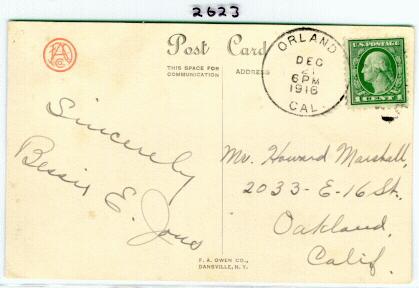 2623
A
Co
Post Card
THIS SPACE FOR
COMMUNICATION
ADDRESS
ORLAND
DEC
21
6 PM
1916
CAL.
U.S. POSTAGE
1 CENT 1
Sincerely
Bessie E. Jones
Mr. Howard Marshall,
2033-E-16 St.,
Oakland,
Calif.
F. A. OWEN CO.,
DANSVILLE, N. Y.